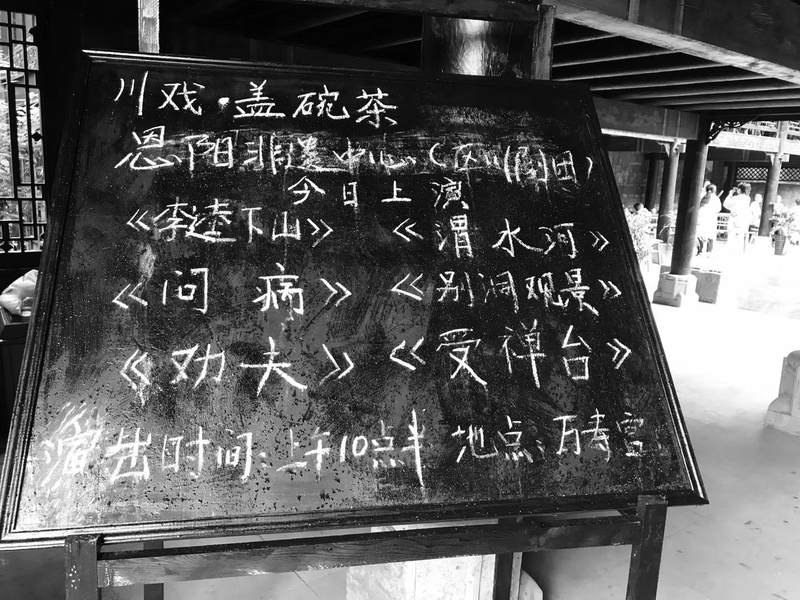 川戏·盖碗茶
恩阳非遗中心(区川剧团)
今日上演
《李逵下山》 《渭水河》
《问病》 《别洞观景》
《劝夫》 《受禅台》
演出时间:上午10点半 地点:万寿宫